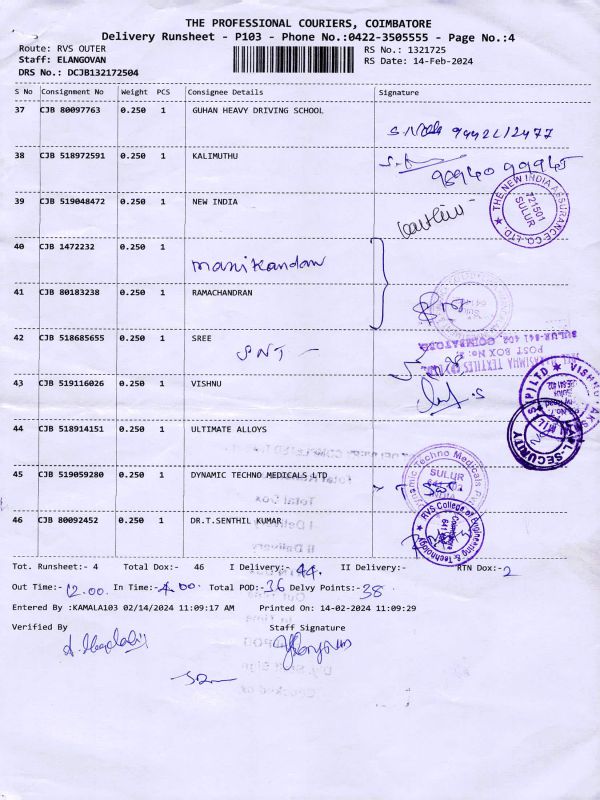 THE PROFESSIONAL COURIERS, COIMBATORE
Delivery Runsheet - P103 - Phone No.:0422-3505555 - Page No.:4
Route: RVS OUTER
RS No.: 1321725
Staff: ELANGOVAN
RS Date: 14-Feb-2024
DRS No.: DCJB132172504
S No Consignment No Weight PCS Consignee Details Signature
37 CJB 80097763 0.250 1 GUHAN HEAVY DRIVING SCHOOL
38 CJB 518972591 0.250 1 KALIMUTHU
98940 99945
39 CJB 519048472 0.250 1 NEW INDIA
THE NEW INDIA ASSURANCE CO. LTD.
721501
SULUR
40 CJB 1472232 0.250 1
manikandan
41 CJB 80183238 0.250 1 RAMACHANDRAN
42 CJB 518685655 0.250 1 SREE
SNT -
SULUR-641 402 COIMBATORE
POST BOX No:
43 CJB 519116026 0.250 1 VISHNU
44 CJB 518914151 0.250 1 ULTIMATE ALLOYS
45 CJB 519059280 0.250 1 DYNAMIC TECHNO MEDICALS LTD
Dynamic Techno Medicals
SULUR
46 CJB 80092452 0.250 1 DR.T.SENTHIL KUMAR
RVS College of Engineering & Technology
Tot. Runsheet:- 4 Total Dox:- 46 I Delivery:- 44. II Delivery:- RTN Dox:- 2
Out Time:- 12.00. In Time:- 4.00. Total POD:- 36 Delvy Points:- 38
Entered By :KAMALA103 02/14/2024 11:09:17 AM Printed On: 14-02-2024 11:09:29
Verified By Staff Signature